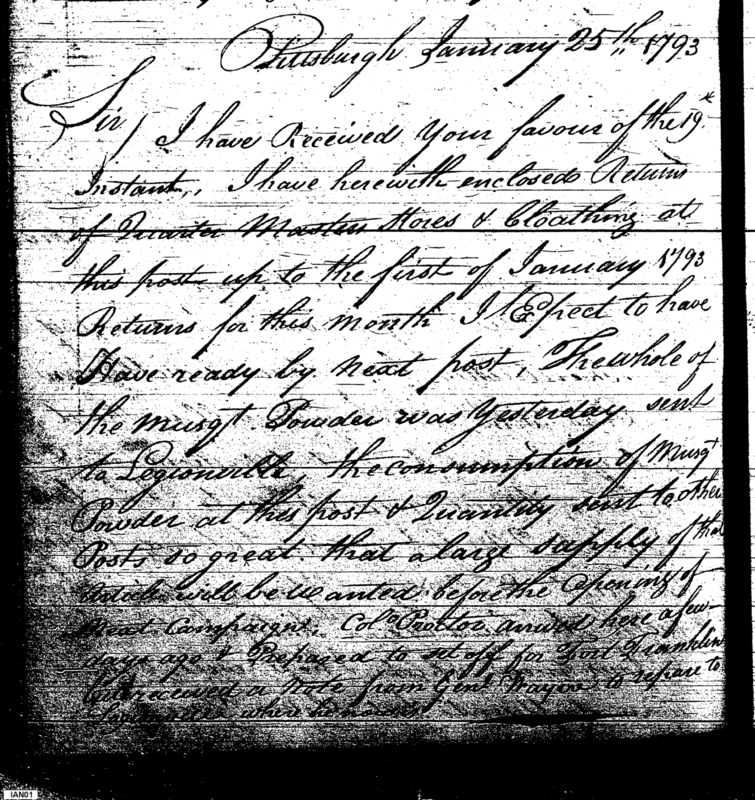 Pittsburgh January 25th 1793
Sir/ I have Received your favour of the 19th
Instant,, I have herewith enclosed Returns
of Quarter Masters Stores & Cloathing at
this post up to the first of January 1793
Returns for this month I Expect to have
Have ready by next post, The whole of
the musqt Powder was Yesterday sent
to Legionville, the consumption of Musqt
Powder at this post & Quantity sent to other
Posts so great that a large supply of that
Article will be wanted before the Opening of
Next Campaign, Colo Proctor arrived here a few
days ago & Prepared to set off for Fort Franklin
but received a Note from Genl Wayne to repare to
Legionville where he now is
IAN01